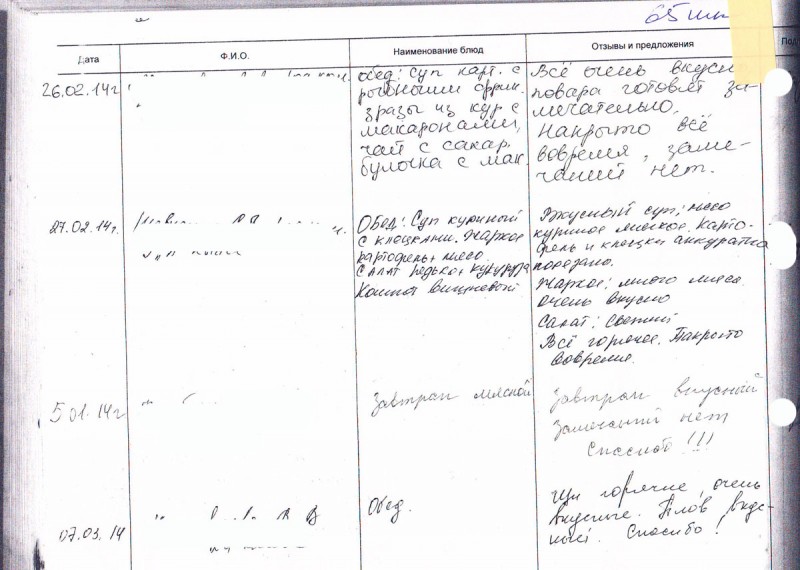 65
Дата
Ф.И.О.
Наименование блюд
Отзывы и предложения
26.02.14г
обед: Суп карт. с
рыбными фрик.
зразы из кур с
макаронами,
чай с сахар.
булочка с мак.
Всё очень вкусно
повара готовят за-
мечательно.
Накрыто всё
вовремя, заме-
чаний нет.
27.02.14г.
Обед: Суп куриный
с клецками. Жаркое
картофель+мясо.
Салат редька+кукуруза
Компот вишневый
Вкусный суп; мясо
куриное мягкое. Карто-
фель и клецки аккуратно
порезано.
Жаркое; много мяса
очень вкусно
Салат: свежий
Всё горячее. Накрыто
вовремя.
5 01. 14г
Завтрак мясной
Завтрак вкусный
Замечаний нет
Спасибо !!!
07.03.14
Обед.
Щи горячие, очень
вкусные. Плов вкус-
ный. Спасибо!